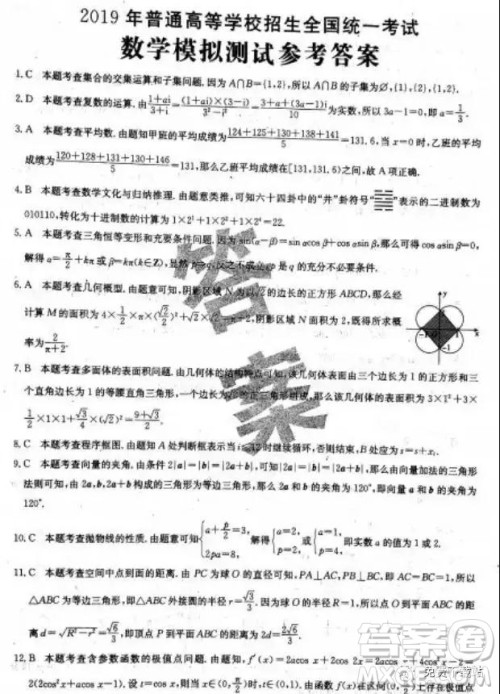 2019年普通高等学校招生全国统一考试
数学模拟测试参考答案
1.C 本题考查集合的交集运算和子集问题.因为A∩B={1,2},所以A∩B的子集为∅,{1},{2},{1,2}.
2.D 本题考查复数的运算.由(1+ai)/(3+i)=(1+ai)(3-i)/(3²-i²)=(3+a+(3a-1)i)/10为实数,所以3a-1=0,即a=1/3.
3.A 本题考查平均数.由题知甲班的平均成绩为(124+125+130+138+141)/5=131.6,当x=0时,乙班平均
成绩为(120+128+131+130+146)/5=131,那么乙班平均成绩在[131,131.6)之间,故A项正确.
4.B 本题考查数学文化与归纳推理.由题意类推,可知六十四卦中的“井”卦符号“”表示的二进制数为
010110,转化为十进制数的计算为1×2¹+1×2²+1×2⁴=22.
5.A 本题考查三角恒等变形和充要条件问题.因为sin(α-β)=sin αcos β+cos αsin β,可得cos αsin β=0,
解得α=π/2+kπ或β=kπ(k∈Z),显然p⇒q,但q不能推出p,故p是q的充分不必要条件.
6.A 本题考查几何概型.由题意知,阴影区域N为以√2的边长的正方形ABCD,那么经
计算M的面积为4×1/2×π×(√2/2)²+2=π+2,阴影区域N面积为2,既得所求概
率为2/(π+2).
7.B 本题考查多面体的表面积问题.由几何体的结构特点可知,该几何体表面由三个边长为1的正方形和三
个直角边长为1的等腰直角三角形,一个边长为√2的正三角形组成,那么该几何体的表面积为3×1²+3×
1/2×1×1+√3/4×(√2)²=(9+√3)/2.
8.C 本题考查程序框图.由题知A处判断框表示当i≤12时继续循环,否则输出结果,B处应填充s=s+xᵢ.
9.C 本题考查向量的夹角.由条件2|a|=|b|=|2a+b|可知,|2a|=|b|=|2a+b|,那么由向量加法的三角形
法则可知,由2a,b,2a+b构成了等边三角形,即向量2a与b的夹角为120°,所以向量a与b的夹角为
120°.
10.C 本题考查抛物线的性质.由题意可知{a+p/2=3, 2pa=8, 解得{a=2, p=2,或{a=1, p=4, 即实数a的值为1或2.
11.C 本题考查空间中点到面的距离.由PC为球O的直径可知,PA⊥AC,PB⊥BC,即AC=BC=1,所以
△ABC为等边三角形,即△ABC外接圆的半径为r=√3/3,因为球O的半径R=1,所以点O到平面ABC的距
离d=√(R²-r²)=√6/3,即顶点P到平面ABC的距离为2d=2√6/3.
12.B 本题考查含参数函数的极值点问题.由题知,f′(x)=2acos x+2acos 2x=2acos x+2a(2cos²x-1)=